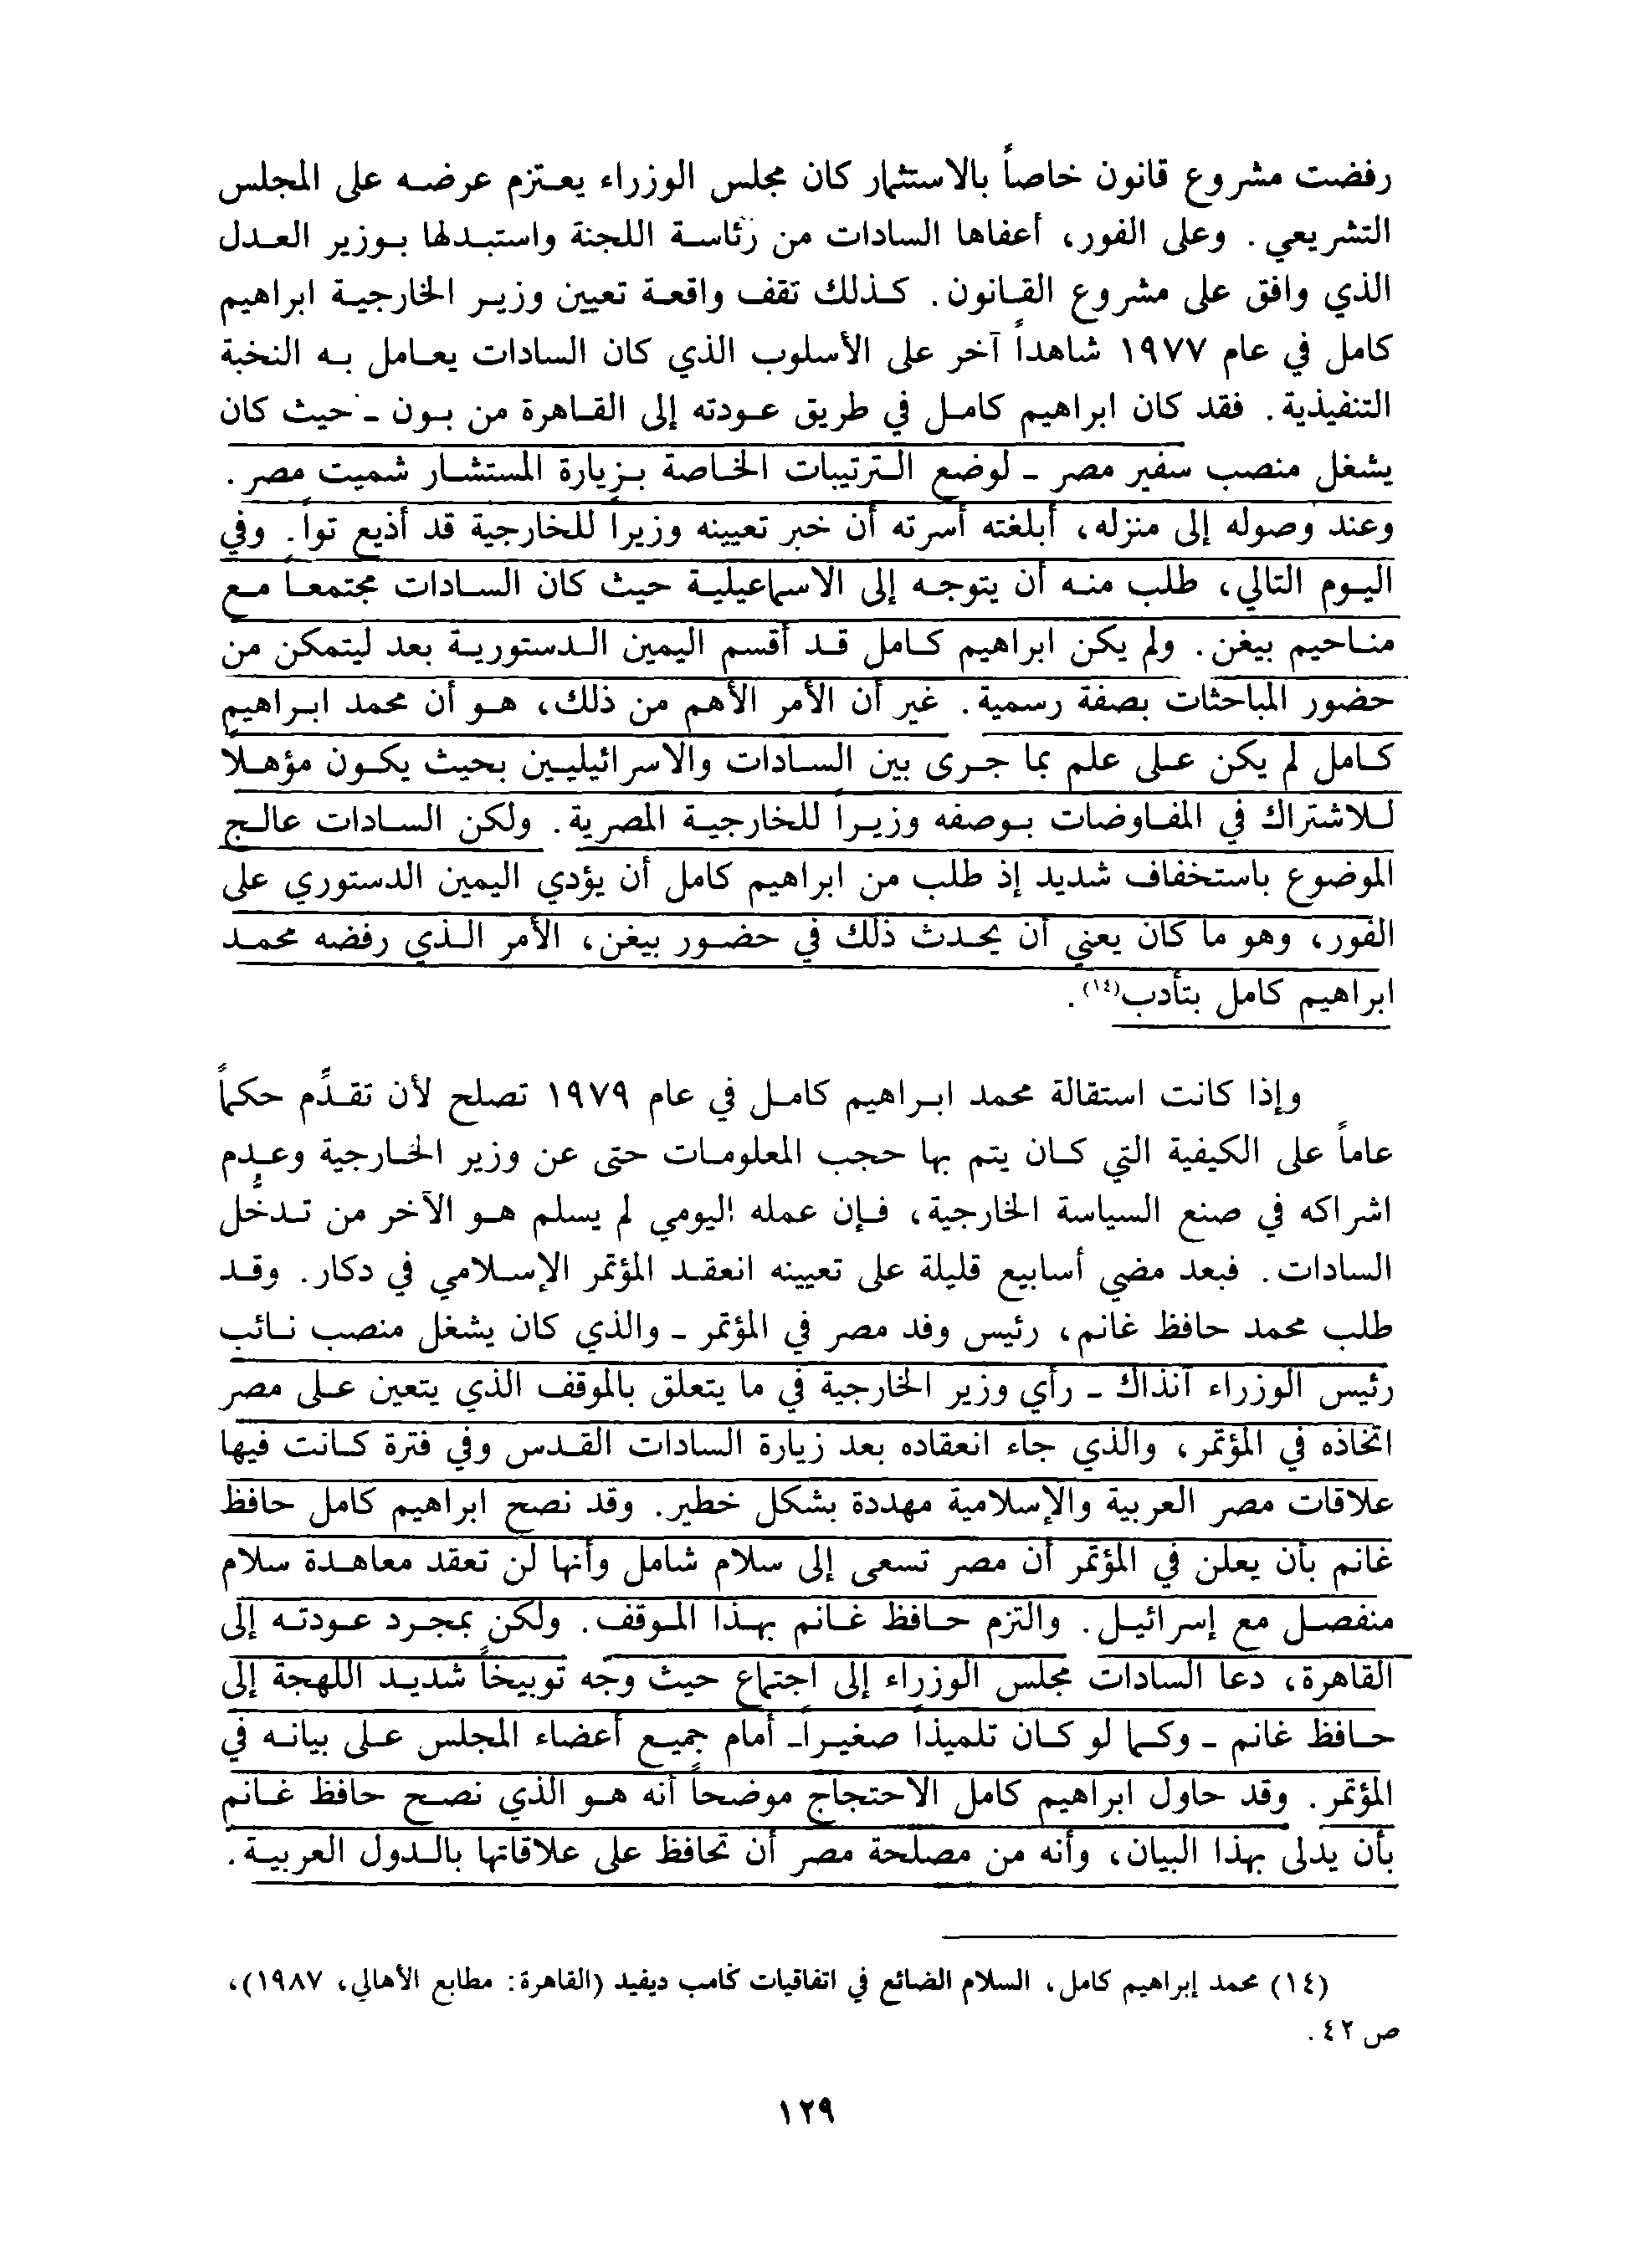 رفضت مشروع قانون خاصاً بالاستثمار كان مجلس الوزراء يعتزم عرضه على المجلس
التشريعي. وعلى الفور، أعفاها السادات من رئاسة اللجنة واستبدلها بوزير العدل
الذي وافق على مشروع القانون. كذلك تقف واقعة تعيين وزير الخارجية ابراهيم
كامل في عام ١٩٧٧ شاهداً آخر على الأسلوب الذي كان السادات يعامل به النخبة
التنفيذية. فقد كان ابراهيم كامل في طريق عودته إلى القاهرة من بون ـ حيث كان
يشغل منصب سفير مصر ـ لوضع الترتيبات الخاصة بزيارة المستشار شميت مصر.
وعند وصوله إلى منزله، أبلغته أسرته أن خبر تعيينه وزيراً للخارجية قد أذيع تواً. وفي
اليوم التالي، طلب منه أن يتوجه إلى الاسماعيلية حيث كان السادات مجتمعاً مع
مناحيم بيغن. ولم يكن ابراهيم كامل قد أقسم اليمين الدستورية بعد ليتمكن من
حضور المباحثات بصفة رسمية. غير أن الأمر الأهم من ذلك، هو أن محمد ابراهيم
كامل لم يكن على علم بما جرى بين السادات والاسرائيليين بحيث يكون مؤهلاً
للاشتراك في المفاوضات بوصفه وزيراً للخارجية المصرية. ولكن السادات عالج
الموضوع باستخفاف شديد إذ طلب من ابراهيم كامل أن يؤدي اليمين الدستوري على
الفور، وهو ما كان يعني أن يحدث ذلك في حضور بيغن، الأمر الذي رفضه محمد
ابراهيم كامل بتأدب(١٤).
وإذا كانت استقالة محمد ابراهيم كامل في عام ١٩٧٩ تصلح لأن تقدِّم حكماً
عاماً على الكيفية التي كان يتم بها حجب المعلومات حتى عن وزير الخارجية وعدم
اشراكه في صنع السياسة الخارجية، فإن عمله اليومي لم يسلم هو الآخر من تدخُّل
السادات. فبعد مضي أسابيع قليلة على تعيينه انعقد المؤتمر الإسلامي في دكار. وقد
طلب محمد حافظ غانم، رئيس وفد مصر في المؤتمر ـ والذي كان يشغل منصب نائب
رئيس الوزراء آنذاك ـ رأي وزير الخارجية في ما يتعلق بالموقف الذي يتعين على مصر
اتخاذه في المؤتمر، والذي جاء انعقاده بعد زيارة السادات القدس وفي فترة كانت فيها
علاقات مصر العربية والإسلامية مهددة بشكل خطير. وقد نصح ابراهيم كامل حافظ
غانم بأن يعلن في المؤتمر أن مصر تسعى إلى سلام شامل وأنها لن تعقد معاهدة سلام
منفصل مع إسرائيل. والتزم حافظ غانم بهذا الموقف. ولكن بمجرد عودته إلى
القاهرة، دعا السادات مجلس الوزراء إلى اجتماع حيث وجه توبيخاً شديد اللهجة إلى
حافظ غانم ـ وكما لو كان تلميذاً صغيراً ـ أمام جميع أعضاء المجلس على بيانه في
المؤتمر. وقد حاول ابراهيم كامل الاحتجاج موضحاً أنه هو الذي نصح حافظ غانم
بأن يدلى بهذا البيان، وأنه من مصلحة مصر أن تحافظ على علاقاتها بالدول العربية.
(١٤) محمد إبراهيم كامل، السلام الضائع في اتفاقيات كامب ديفيد (القاهرة: مطابع الأهالي، ١٩٨٧)،
ص ٤٢.
١٢٩